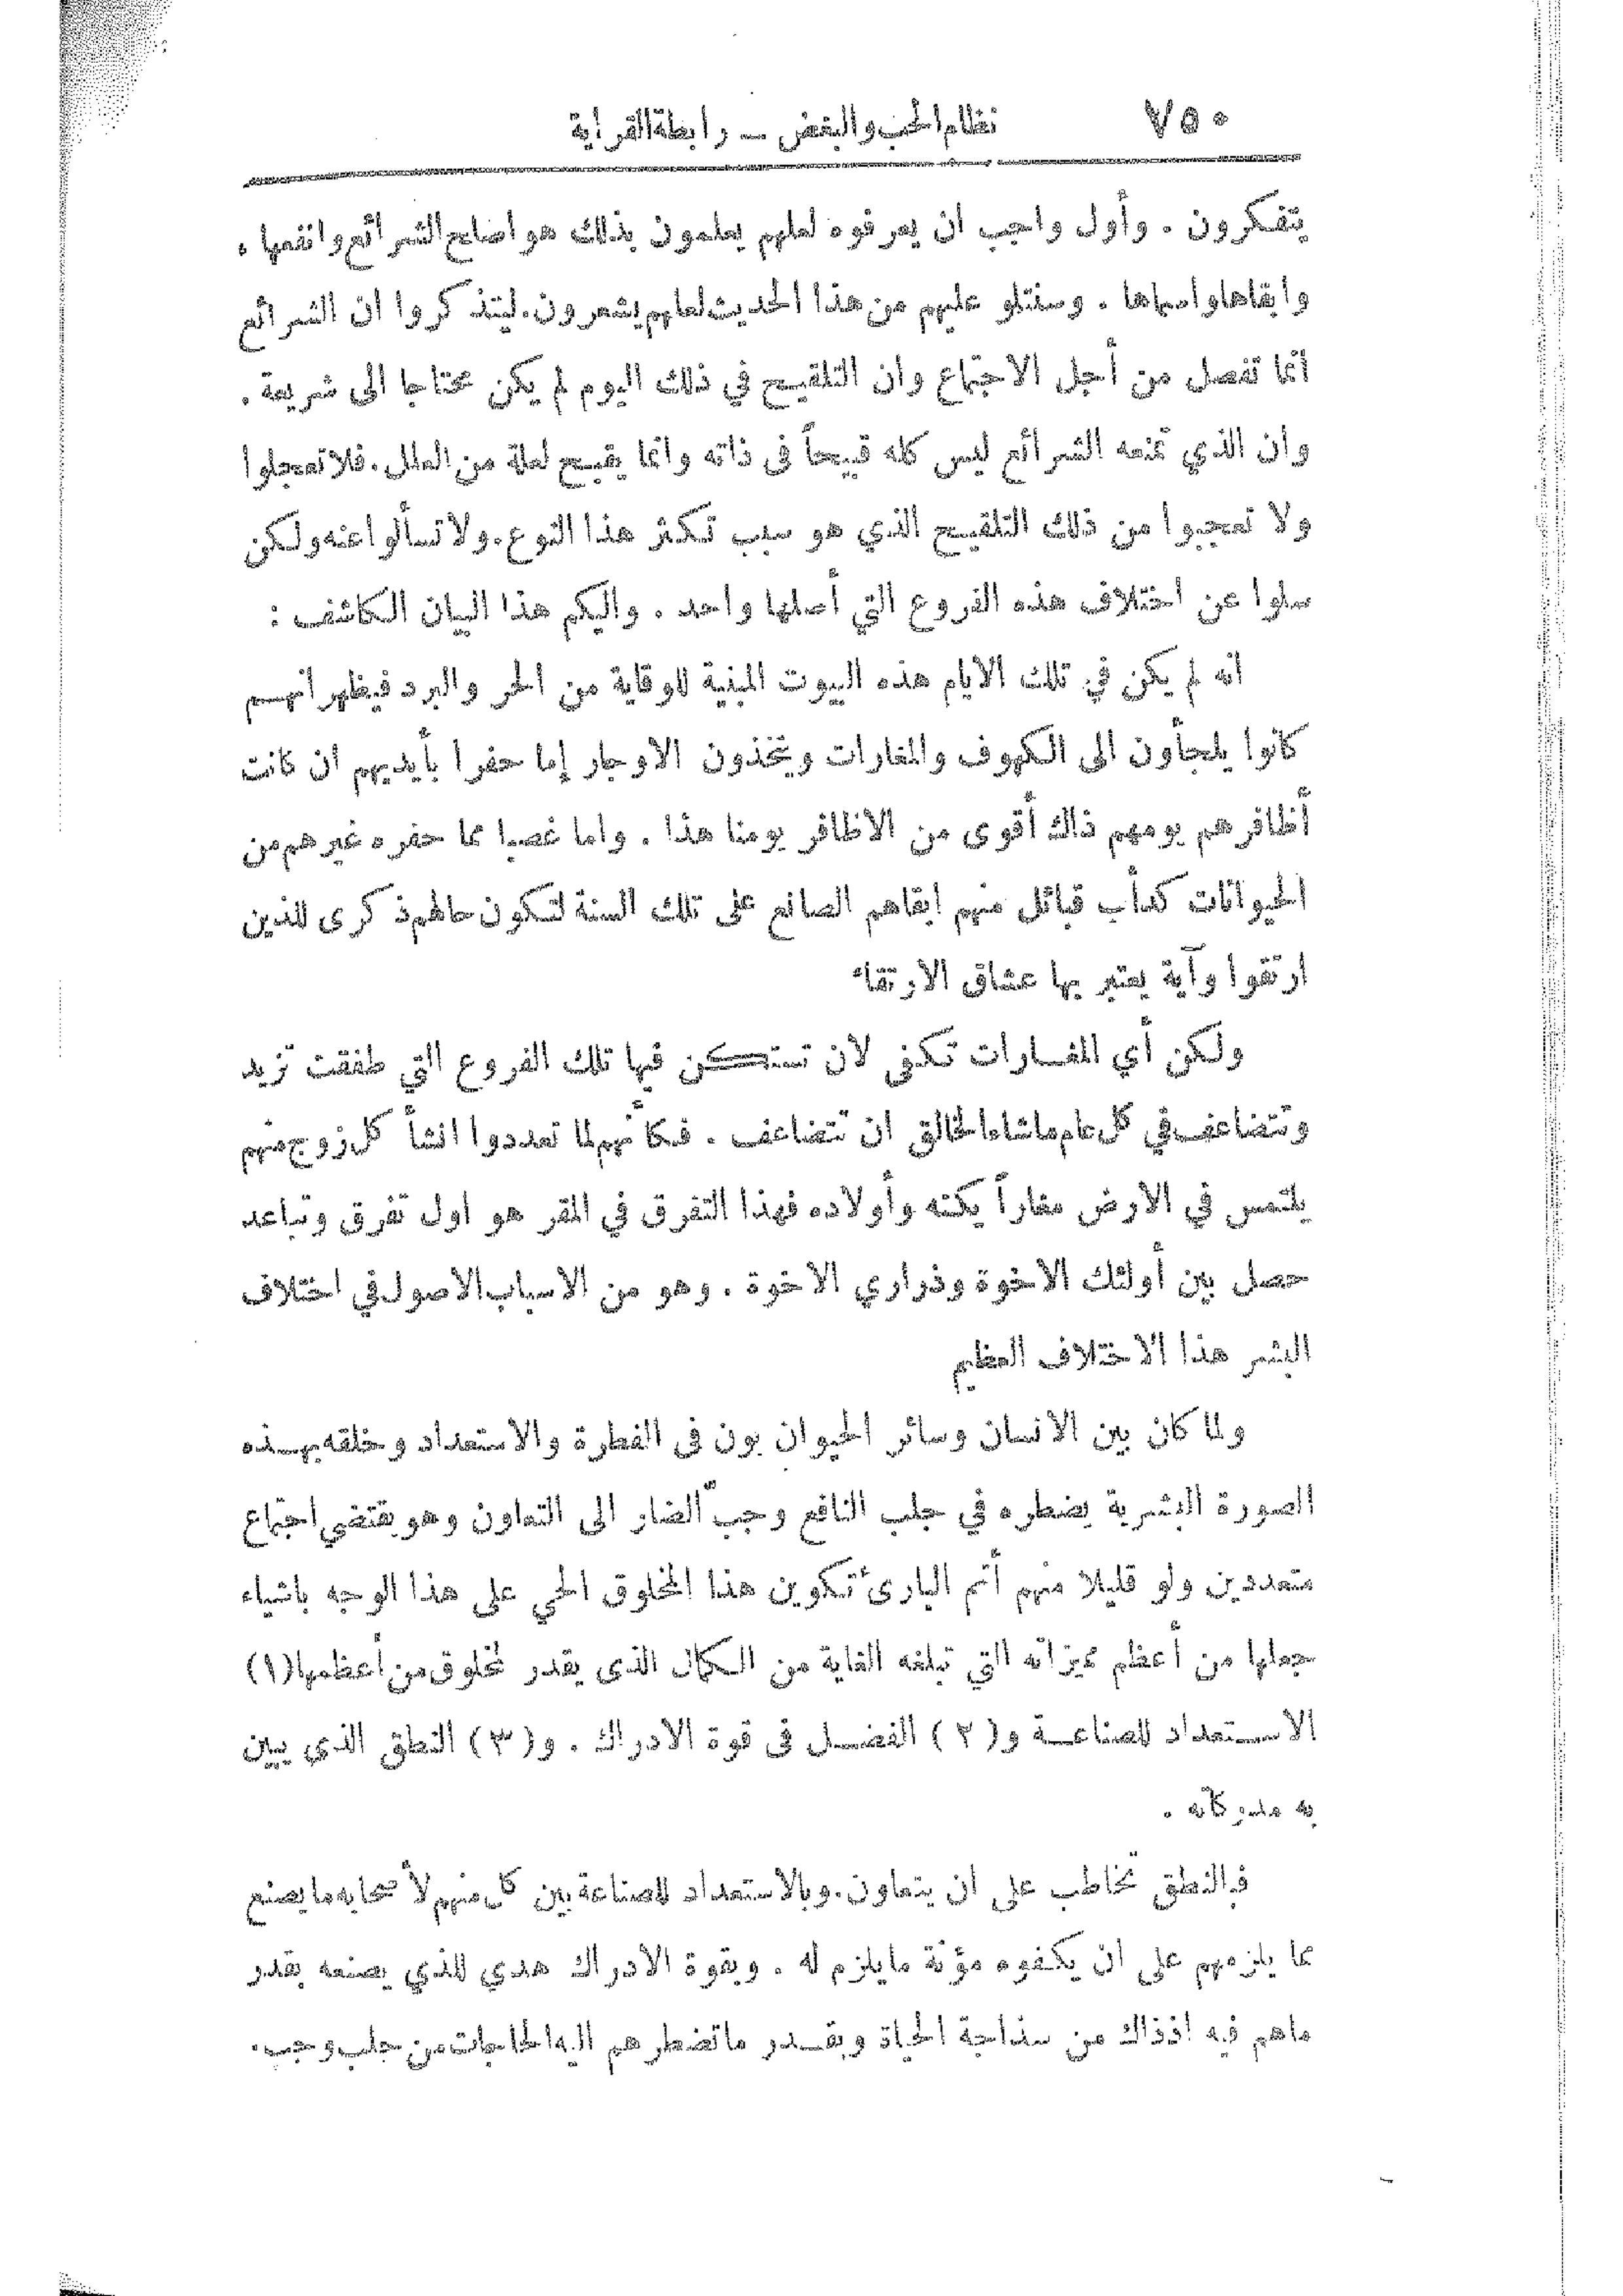 ٧٥٠
نظام الحب والبغض — رابطة القراية
يتفكرون . وأول واجب ان يعرفوه لعلهم يعلمون بذلك هو اصلح الشرائع وانفعها ،
وابقاها واسماها . وسنتلو عليهم من هذا الحديث لعلهم يشعرون . ليتذكروا ان الشرائع
انما تفصل من أجل الاجتماع وان التلقيح في ذلك اليوم لم يكن محتاجا الى شريعة .
وان الذي تمنعه الشرائع ليس كله قبيحاً فى ذاته وانما يقبح لعلة من العلل . فلا تعجلوا
ولا تعجبوا من ذلك التلقيح الذي هو سبب تكثر هذا النوع . ولا تسألوا عنه ولكن
سلوا عن اختلاف هذه الفروع التي أصلها واحد . واليكم هذا البيان الكاشف :
انه لم يكن في تلك الايام هذه البيوت المبنية للوقاية من الحر والبرد فيظهر انهم
كانوا يلجأون الى الكهوف والمغارات ويتخذون الاوجار إما حفرا بأيديهم ان كانت
أظافرهم يومهم ذاك أقوى من الاظافر يومنا هذا . واما غصبا مما حفره غيرهم من
الحيوانات كدأب قبائل منهم ابقاهم الصانع على تلك السنة لتكون حالهم ذكرى للذين
ارتقوا وآية يعتبر بها عشاق الارتقاء
ولكن أي المغارات تكفي لان تستكن فيها تلك الفروع التي طفقت تزيد
وتتضاعف في كل عام ماشاء الخالق ان تتضاعف . فكأنهم لما تعددوا انشأ كل زوج منهم
يلتمس في الارض مغاراً يكنه وأولاده فهذا التفرق في المقر هو اول تفرق وتباعد
حصل بين أولئك الاخوة وذراري الاخوة . وهو من الاسباب الاصول في اختلاف
البشر هذا الاختلاف العظيم
ولما كان بين الانسان وسائر الحيوان بون فى الفطرة والاستعداد وخلقه بهذه
الصورة البشرية يضطره في جلب النافع وجبّ الضار الى التعاون وهو يقتضي اجتماع
متعددين ولو قليلا منهم أتم البارئ تكوين هذا المخلوق الحي على هذا الوجه باشياء
جعلها من أعظم مميزاته التي تبلغه الغاية من الكمال الذى يقدر لمخلوق من أعظمها (١)
الاستعداد للصناعة و(٢) الفضل فى قوة الادراك . و(٣) النطق الذي يبين
به مدركاته .
فبالنطق تخاطب على ان يتعاون . وبالاستعداد للصناعة بين كل منهم لأصحابه ما يصنع
مما يلزمهم على ان يكفوه مؤنة ما يلزم له . وبقوة الادراك هدي للذي يصنعه بقدر
ماهم فيه اذذاك من سذاجة الحياة وبقدر ما تضطرهم اليه الحاجات من جلب وجب .